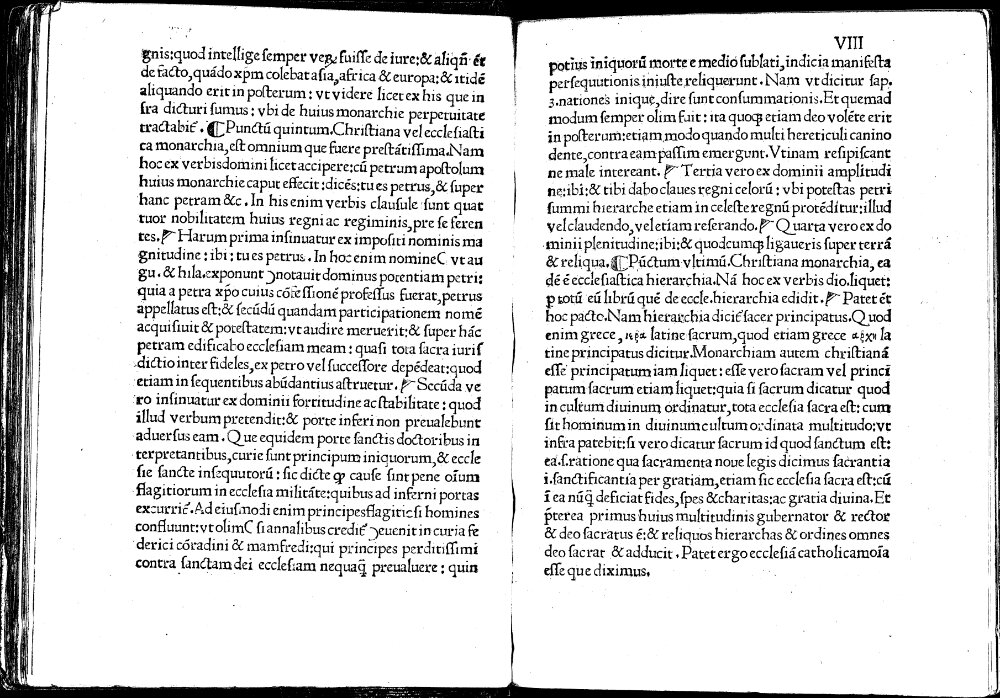 gnis:quod intellige semper veꝝ fuisse de iure:& aliqñ ēt
de facto, quādo xp̄m colebat asia, africa & europa:& itidē
aliquando erit in posterum : vt videre licet ex his que in
fra dicturi sumus : vbi de huius monarchie perpetuitate
tractabiť. ¶Punctū quintum. Christiana vel ecclesiasti
ca monarchia, est omnium que fuere prestātissima. Nam
hoc ex verbisdomini licet accipere: cū petrum apostolum
huius monarchie caput effecit : dicēs: tu es petrus, & super
hanc petram &c. In his enim verbis clausule sunt quat
tuor nobilitatem huius regni ac regiminis, pre se feren
tes. Harum prima insinuatur ex impositi nominis ma
gnitudine : ibi : tu es petrus. In hoc enim nomine( vt au
gu. & hila.exponunt )notauit dominus potentiam petri:
quia a petra xp̄o cuius cōfessionē professus fuerat, petrus
appellatus est:& secūdū quandam participationem nomē
acquisiuit & potestatem: vt audire meruerit:& super hāc
petram edificabo ecclesiam meam : quasi tota sacra iuris
dictio inter fideles, ex petro vel successore depēdeat: quod
etiam in sequentibus abūdantius astruetur. Secūda ve
ro insinuatur ex dominii fortitudine ac stabilitate : quod
illud verbum pretendit:& porte inferi non preualebunt
aduersus eam. Que equidem porte sanctis doctoribus in
terpretantibus, curie sunt principum iniquorum, & eccle
sie sancte insequutorū : sic dicte ꝙ cause sint pene oīum
flagitiorum in ecclesia militāte: quibus ad inferni portas
excurriť. Ad eiusmodi enim principes flagitiosi homines
confluunt: vt olim( si annalibus crediť )euenit in curia fe
derici cōradini & mamfredi: qui principes perditissimi
contra sanctam dei ecclesiam nequaq̄ preualuere : quin
VIII
potius iniquorū morte e medio sublati, indicia manifesta
persequutionis iniuste reliquerunt. Nam vt dicitur sap.
3. nationes inique, dire sunt consummationis. Et quemad
modum semper olim fuit : ita quoqꝫ etiam deo volēte erit
in posterum: etiam modo quando multi hereticuli canino
dente, contra eam passim emergunt. Vtinam resipiscant
ne male intereant. Tertia vero ex dominii amplitudi
ne: ibi:& tibi dabo claues regni celorū : vbi potestas petri
summi hierarche etiam in celeste regnū protēditur: illud
vel claudendo, vel etiam referando. Quarta vero ex do
minii plenitudine: ibi:& quodcumqꝫ ligaueris super terrā
& reliqua. ¶Pūctum vltimū. Christiana monarchia, ea
dē ē ecclesiastica hierarchia. Nā hoc ex verbis dio. liquet:
p totū eū librū quē de eccle. hierarchia edidit. Patet ēt
hoc pacto. Nam hierarchia diciť sacer principatus. Quod
enim grece, ιερα latine sacrum, quod etiam grece αρχη la
tine principatus dicitur. Monarchiam autem christianā
esse principatum iam liquet : esse vero sacram vel princi
patum sacrum etiam liquet: quia si sacrum dicatur quod
in cultum diuinum ordinatur, tota ecclesia sacra est: cum
sit hominum in diuinum cultum ordinata multitudo: vt
infra patebit: si vero dicatur sacrum id quod sanctum est:
ea .s. ratione qua sacramenta noue legis dicimus sacrantia
.i. sanctificantia per gratiam, etiam sic ecclesia sacra est: cū
ī ea nūq̄ deficiat fides, spes & charitas: ac gratia diuina. Et
p̄terea primus huius multitudinis gubernator & rector
& deo sacratus ē:& reliquos hierarchas & ordines omnes
deo sacrat & adducit. Patet ergo ecclesiā catholicam oīa
esse que diximus.